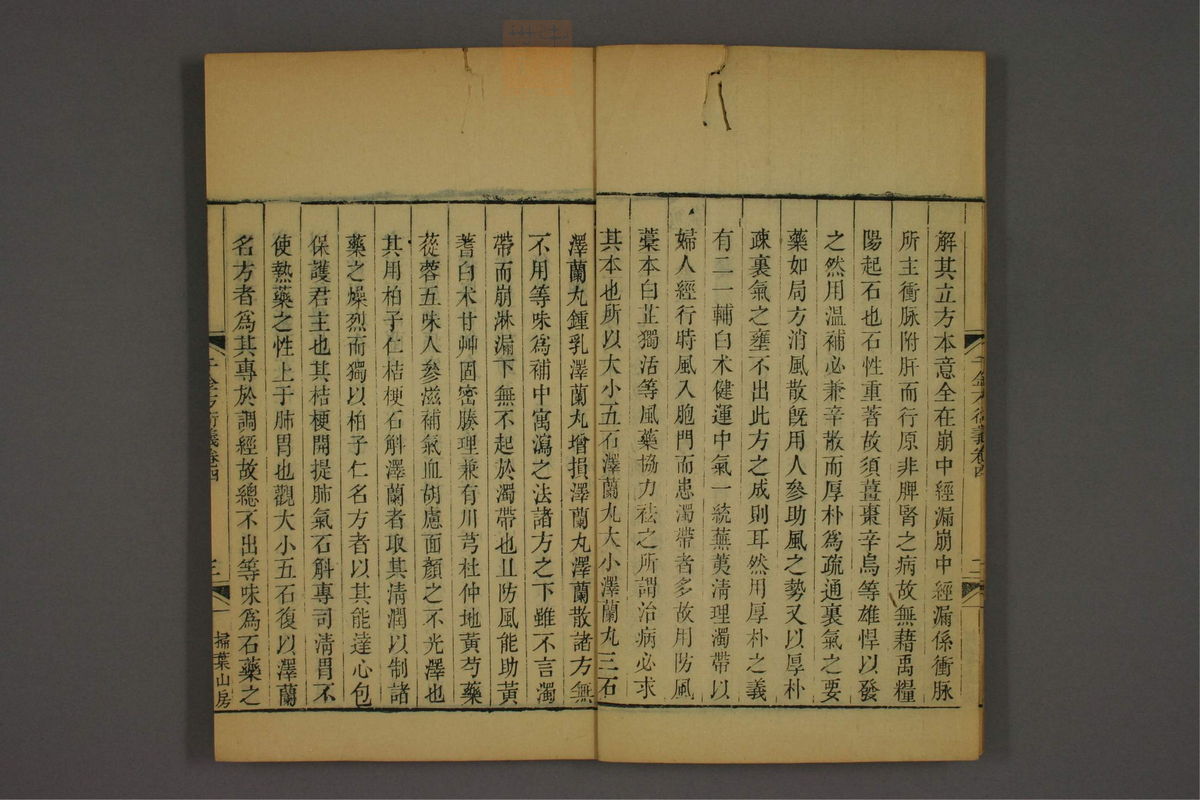 解其立方本意全在崩中經漏崩中經漏係衝脉
所主衝脉附肝而行原非脾腎之病故無藉禹糧
陽起石也石性重著故須薑棗辛烏等雄悍以發
之然用溫補必兼辛散而厚朴爲疏通裏氣之要
藥如局方消風散旣用人參助風之勢又以厚朴
疎裏氣之壅不出此方之成則耳然用厚朴之義
有二一輔白朮健運中氣一統蕪荑淸理濁帶以
婦人經行時風入胞門而患濁帶者多故用防風
藁本白芷獨活等風藥協力祛之所謂治病必求
其本也所以大小五石澤蘭丸大小澤蘭丸三石
澤蘭丸鍾乳澤蘭丸增損澤蘭丸澤蘭散諸方無
不用等味爲補中寓瀉之法諸方之下雖不言濁
帶而崩淋漏下無不起於濁帶也且防風能助黃
蓍白朮甘艸固密腠理兼有川芎杜仲地黃芍藥
蓯蓉五味人參滋補氣血胡慮面顏之不光澤也
其用柏子仁桔梗石斛澤蘭者取其淸潤以制諸
藥之燥烈而獨以柏子仁名方者以其能達心包
保護君主也其桔梗開提肺氣石斛專司淸胃不
使熱藥之性上于肺胃也觀大小五石復以澤蘭
名方者爲其專於調經故總不出等味爲石藥之
千金方衍義卷四
三
掃葉山房